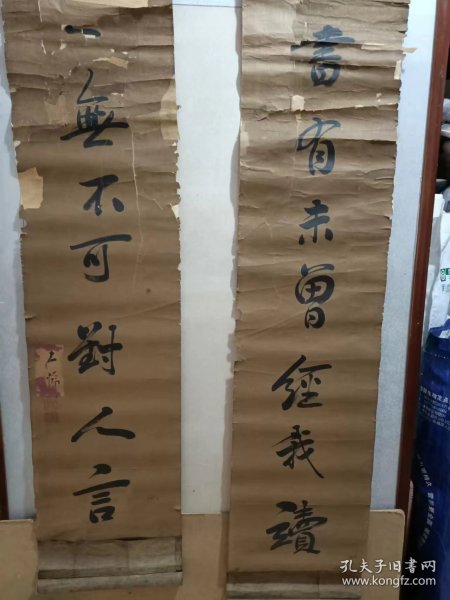 書有未曾經我讀
無不可對人言
孔夫子旧书网
www.kongfz.com